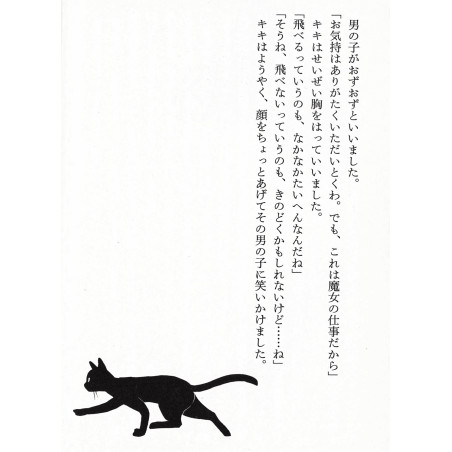 男の子がおずおずといいました。
「お気持はありがたくいただいとくわ。でも、これは魔女の仕事だから」
キキはせいぜい胸をはっていいました。
「飛べるっていうのも、なかなかたいへんなんだね」
「そうね、飛べないっていうのも、きのどくかもしれないけど……ね」
キキはようやく、顔をちょっとあげてその男の子に笑いかけました。